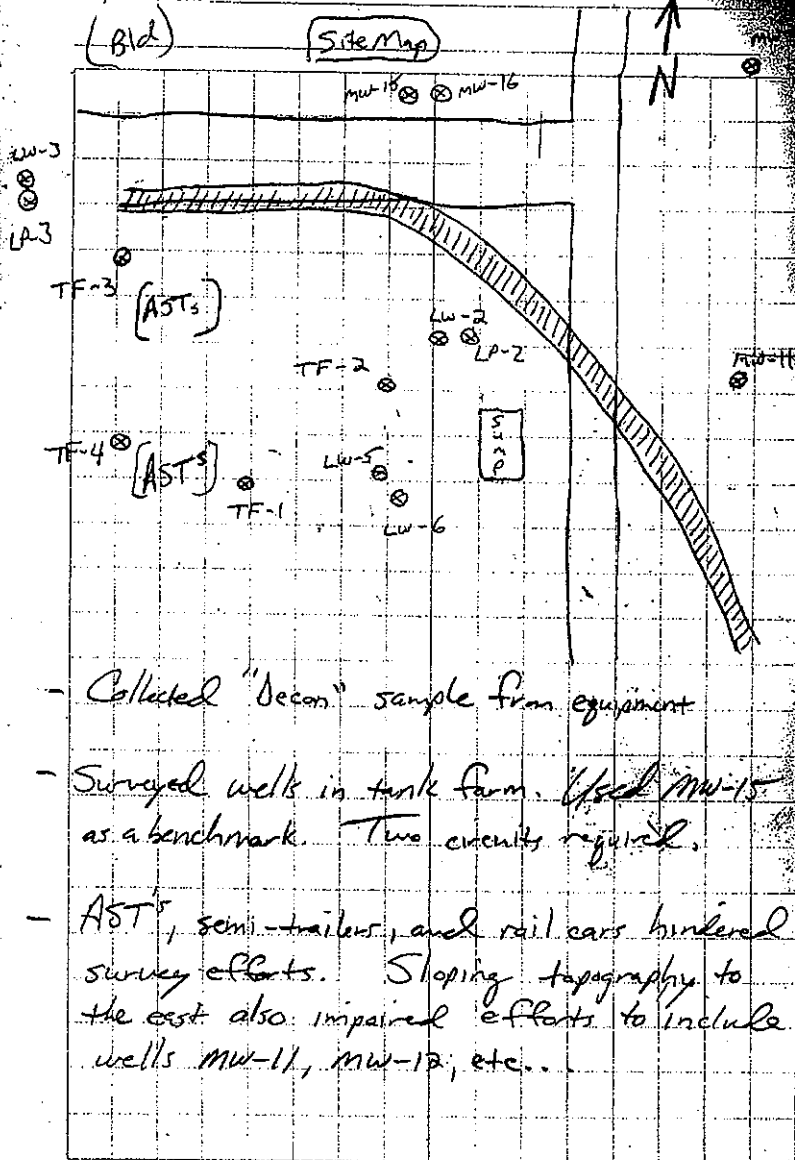 (Bld)
Site Map
N
MW-15
MW-16
LW-3
LP-3
TF-3
[ASTs]
LW-2
LP-2
TF-2
MW-11
TF-4
[AST's]
TF-1
LW-5
LW-6
Sump
- Collected "Decon" sample from equipment
- Surveyed wells in tank farm. Used MW-15
as a benchmark. Two circuits required.
- AST's, semi-trailers, and rail cars hindered
survey efforts. Sloping topography to
the east also impaired efforts to include
wells MW-11, MW-12, etc..